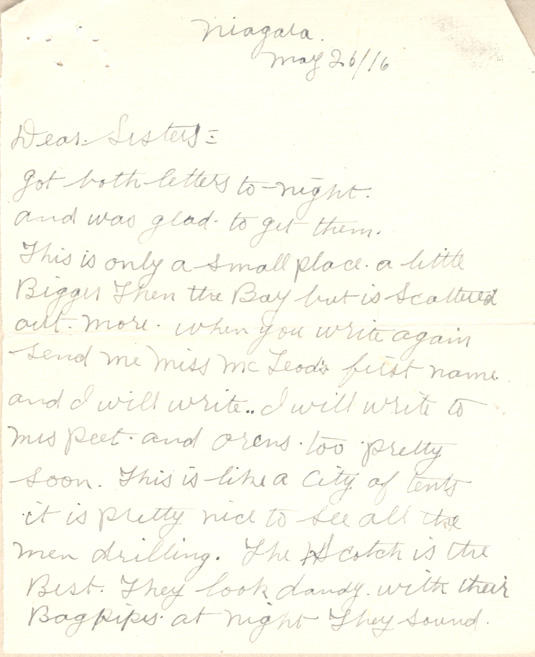 Niagara.
May 26/16
Dear Sisters =
got both letters to-night.
and was glad to get them.
This is only a small place. a little
Bigger Then the Bay but is Scattered
out more. when you write again
Send me Miss Mc Leods first name
and I will write.. I will write to
Mrs Peet. and Orens. too pretty
soon. This is like a City of tents
it is pretty nice to see all the
men drilling. The Scotch is the
Best. They look dandy. with their
Bagpipes at night They sound.